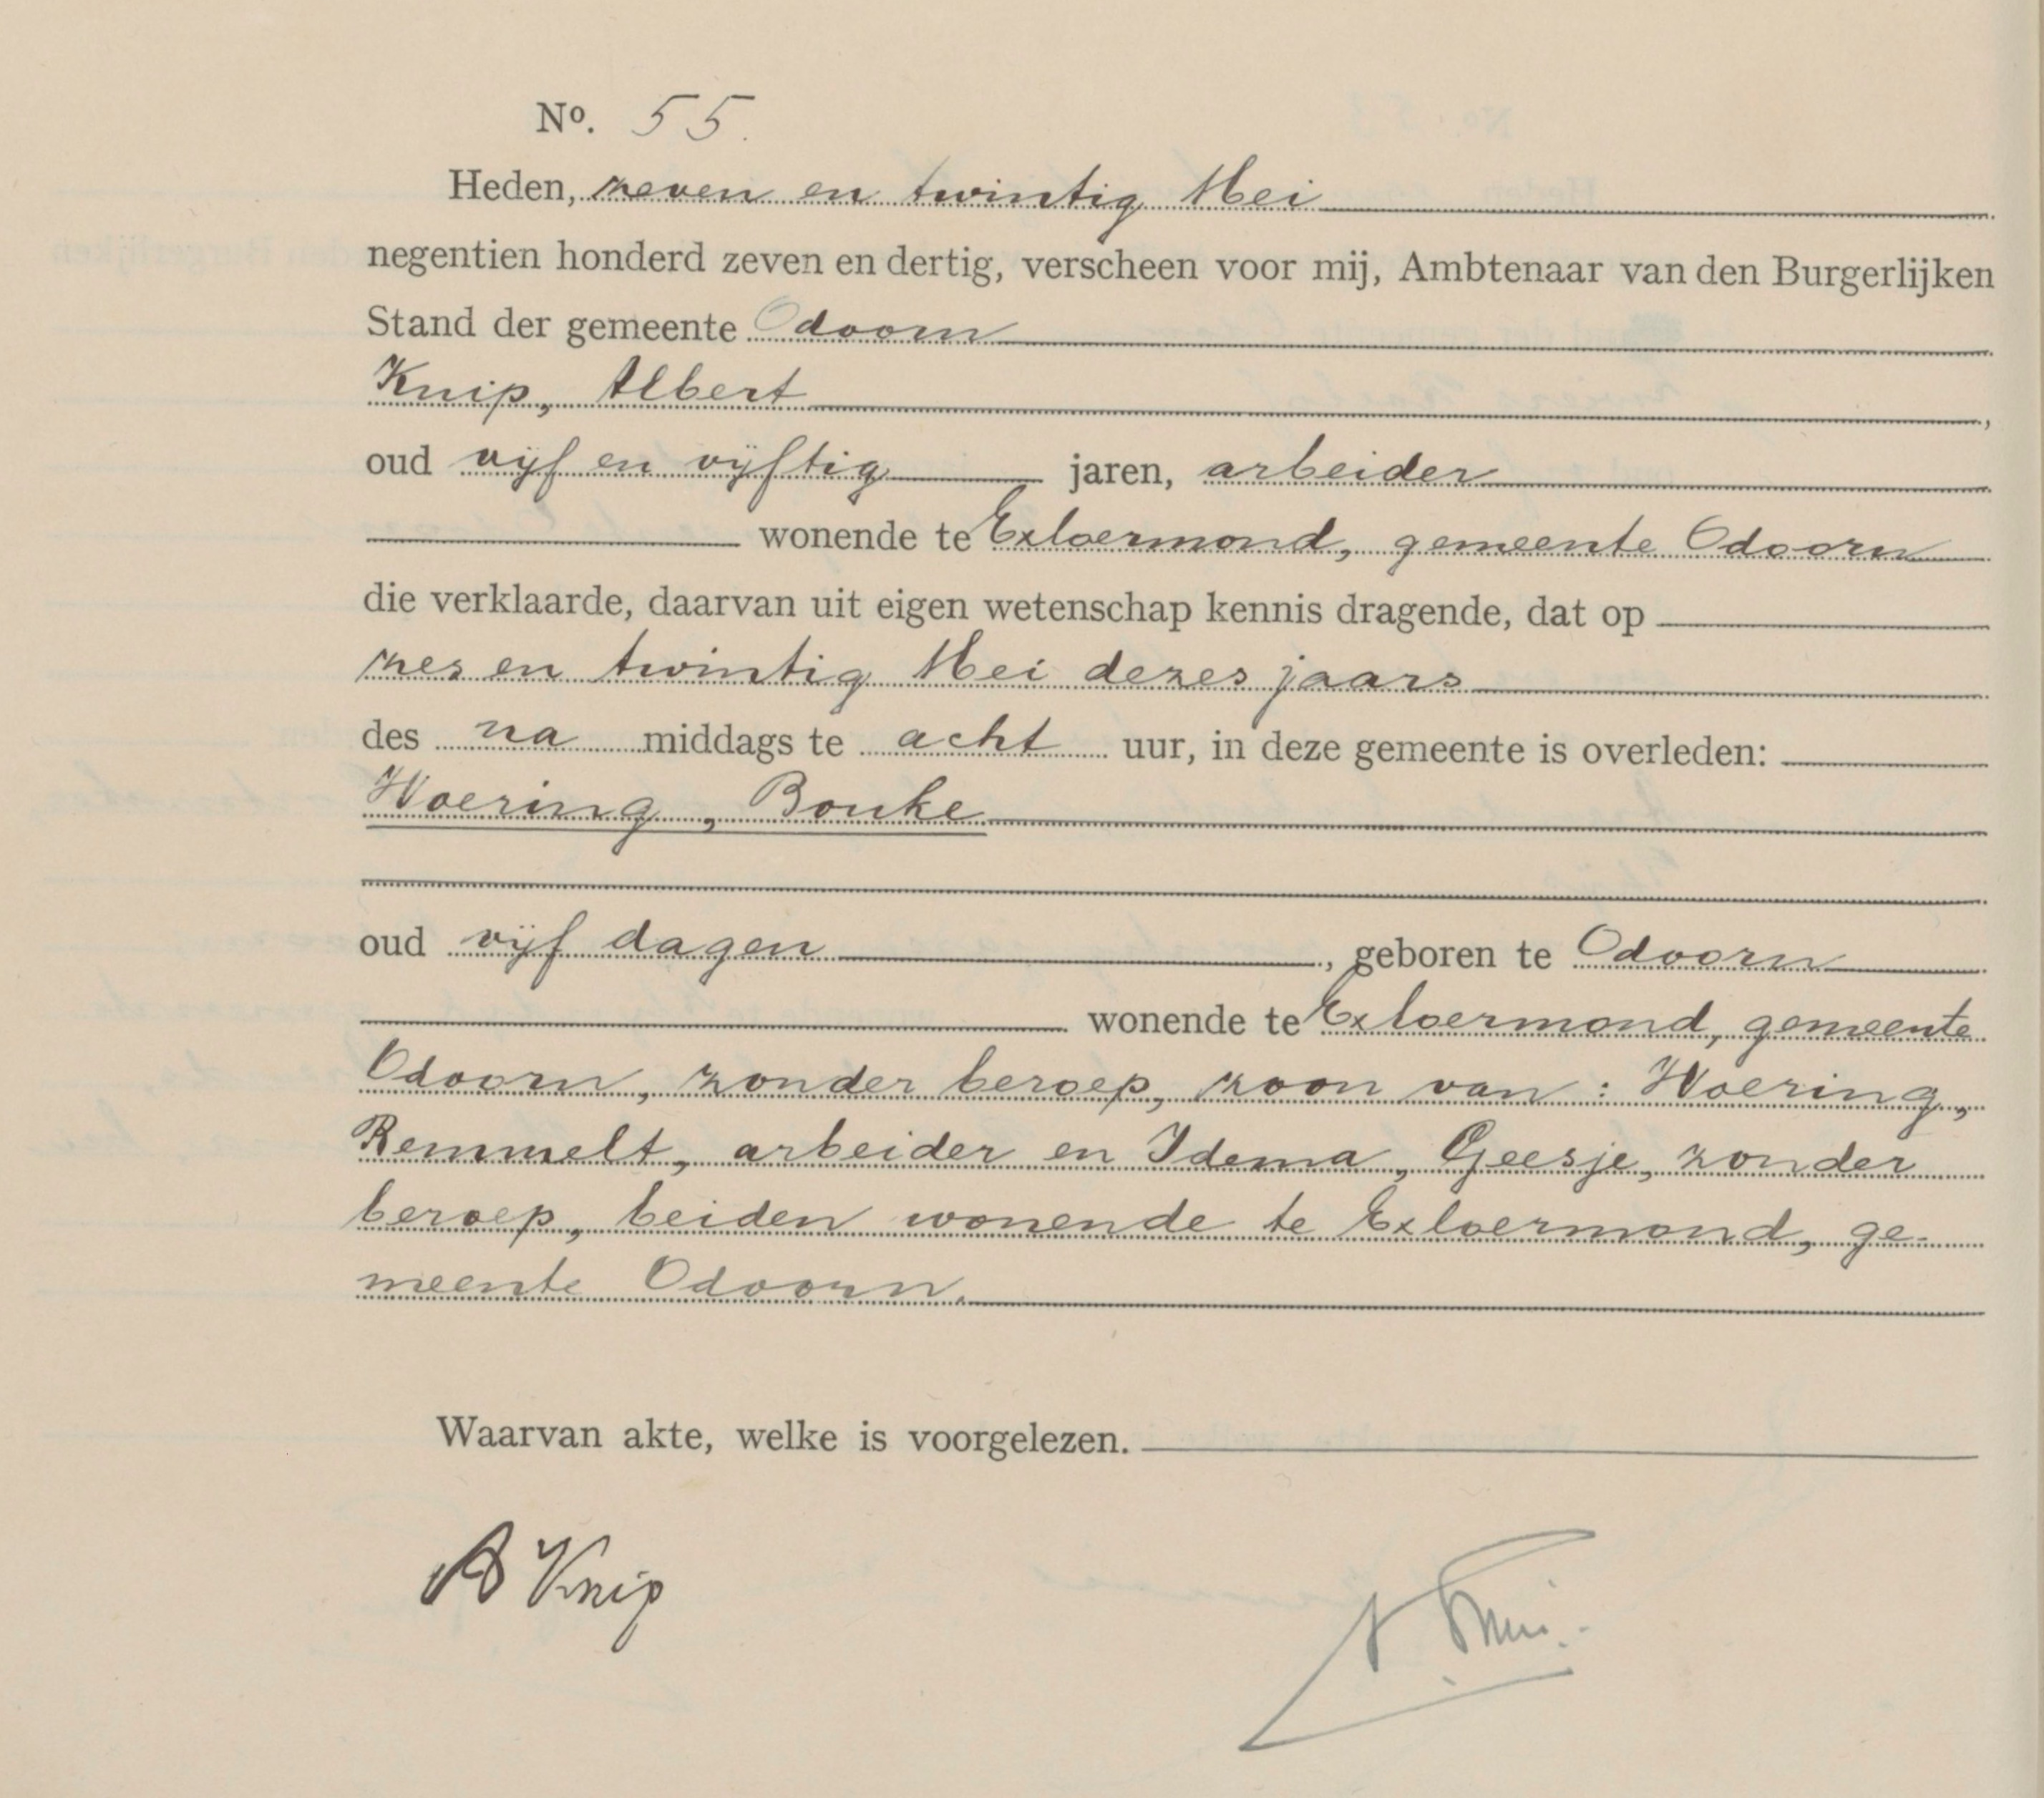 No. 55.
Heden, zeven en twintig Mei
negentien honderd zeven en dertig, verscheen voor mij, Ambtenaar van den Burgerlijken
Stand der gemeente Odoorn
Knip, Albert,
oud vijf en vijftig jaren, arbeider
wonende te Exloermond, gemeente Odoorn
die verklaarde, daarvan uit eigen wetenschap kennis dragende, dat op
zes en twintig Mei dezes jaars
des na middags te acht uur, in deze gemeente is overleden:
Woering, Bouke
oud vijf dagen, geboren te Odoorn
wonende te Exloermond, gemeente
Odoorn, zonder beroep, zoon van: Woering,
Remmelt, arbeider en Idema, Geesje, zonder
beroep, beiden wonende te Exloermond, ge-
meente Odoorn.
Waarvan akte, welke is voorgelezen.
A Knip